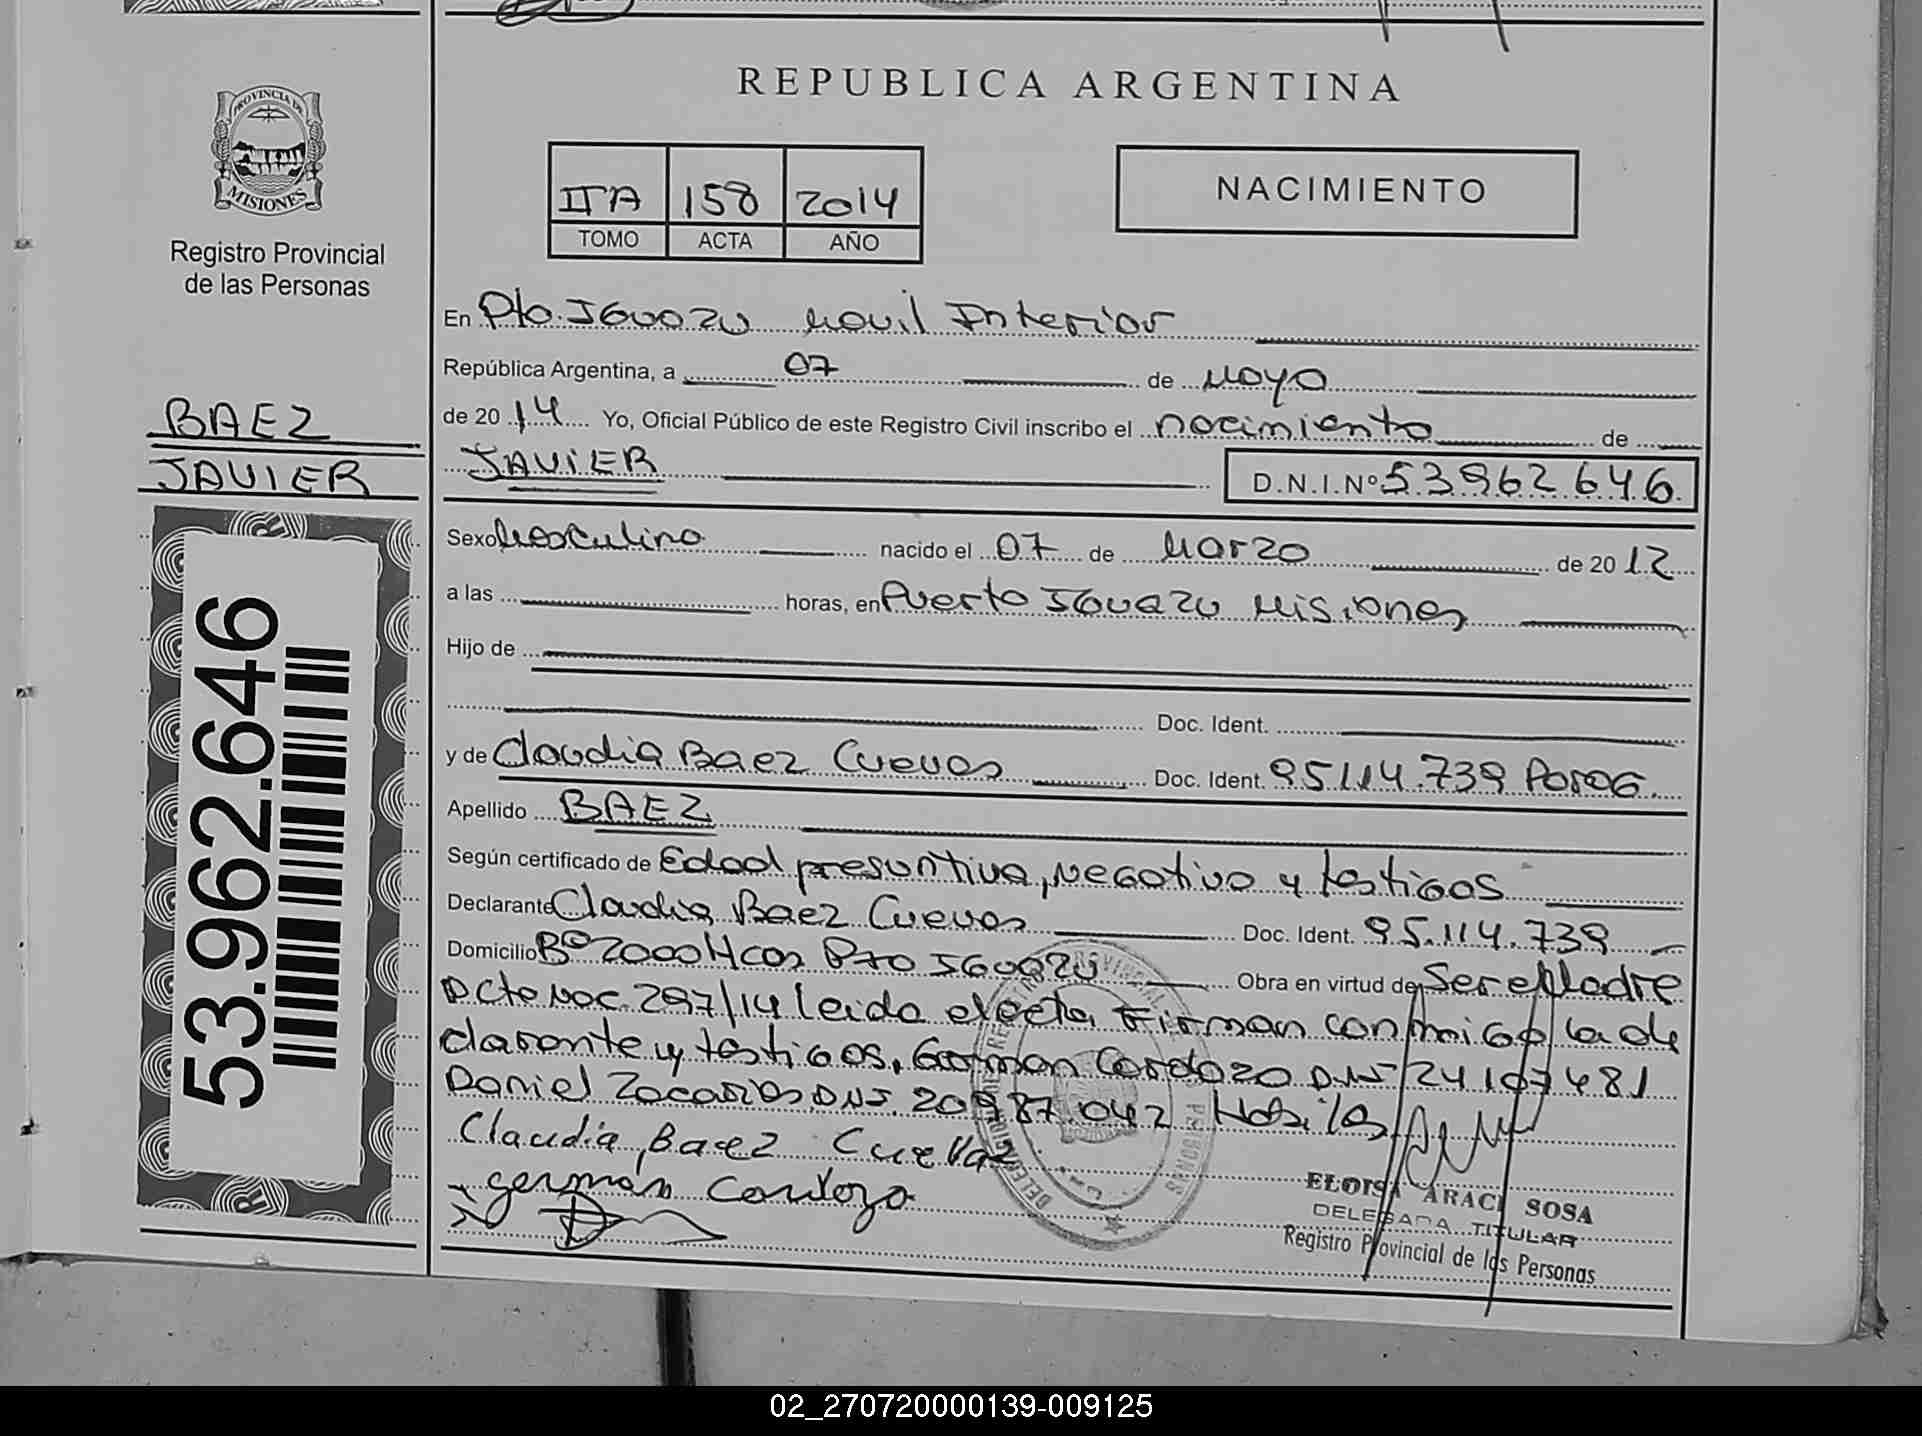 REPUBLICA ARGENTINA
PROVINCIA DE
MISIONES
Registro Provincial
de las Personas
IIA 158 2014
TOMO ACTA AÑO
NACIMIENTO
En Pto. Iguazu Movil Interior
República Argentina, a 07 de Mayo
de 20 14 Yo, Oficial Público de este Registro Civil inscribo el nacimiento de
JAVIER D.N.I.Nº 53962646
BAEZ
JAVIER
53.962.646
Sexo Masculino nacido el 07 de Marzo de 20 12
a las horas, en Puerto Iguazu Misiones
Hijo de
Doc. Ident.
y de Claudia Baez Cuevas Doc. Ident. 95.114.739 Parag.
Apellido BAEZ
Según certificado de Edad presuntiva, Negativo y testigos
Declarante Claudia Baez Cuevas Doc. Ident. 95.114.739
Domicilio Bº 2000 Hcas Pto Iguazu Obra en virtud de Ser el Madre
Dcto Nac. 297/14 leida el acta, Firman conmigo la de
clarante y testigos, German Cardozo DNI 24107481
Daniel Zacarias DNI. 20987.042 Habiles
Claudia Baez Cuevas
german Cardozo
ELOISA ARACI SOSA
DELEGADA TITULAR
Registro Provincial de las Personas
02_270720000139-009125